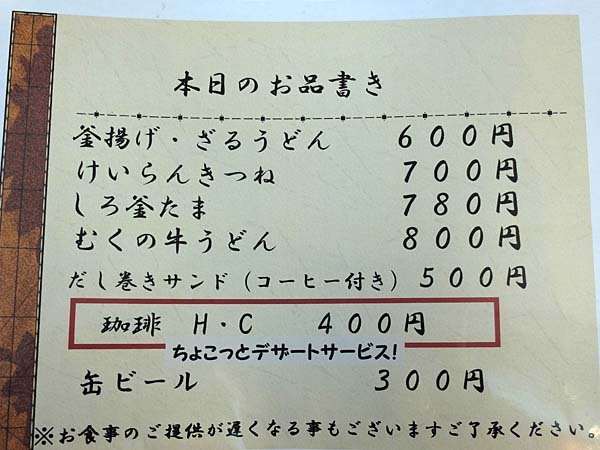 本日のお品書き
釜揚げ・ざるうどん 600円
けいらんきつね 700円
しろ釜たま 780円
むくの牛うどん 800円
だし巻きサンド（コーヒー付き）500円
珈琲 H・C 400円
ちょこっとデザートサービス!
缶ビール 300円
※お食事のご提供が遅くなる事もございますご了承ください。